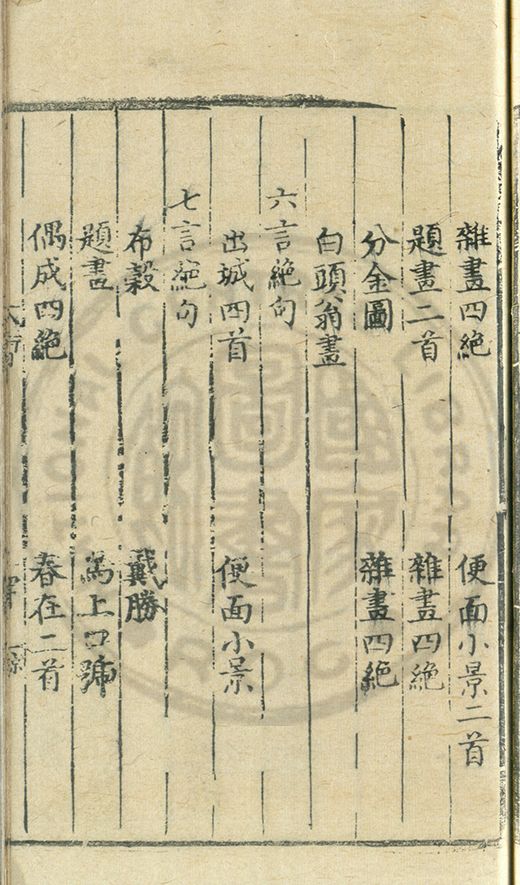 雜畫四絶　便面小景二首
題畫二首　雜畫四絶
分金圖　雜畫四絶
白頭翁畫
六言絶句
出城四首　便面小景
七言絶句
布穀　戴勝
題畫　馬上口號
偶成四絶　春在二首